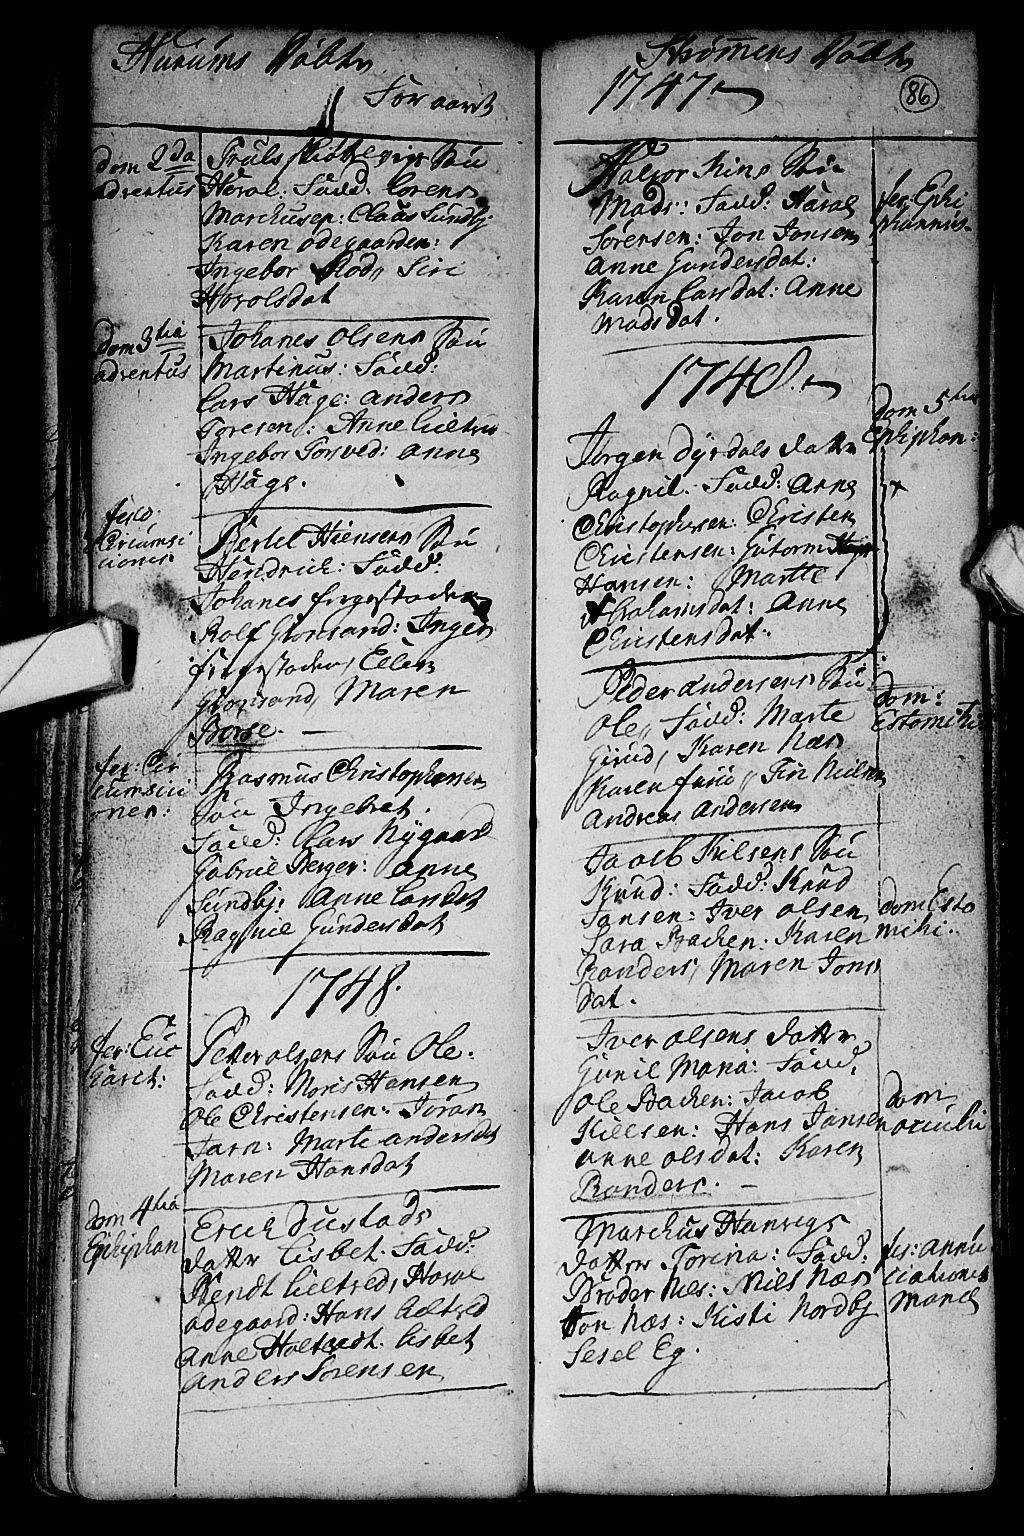 Hurums Döbte
For aaret
dom 2da
adventus
Truls Söu
Haral: Fadd: Lorens
Marchusen: Claus Sundbj
Karen ödegaarden:
Ingebor Rod, Siri
Harolsdat
dom 3tia
adventus
Johanes Olsens Söu
Martinus: Fadd:
Lars Hage: anders
Toresen: Anne
Ingebor Torsved: anne
Hage.
fest:
Circumsi
tionis
Bertel Hiensens Söu
Hendrich: Fadd:
Johanes fingestaden
Rolf Glomsand: Inger
fingestaden, Ellen
Glomsand, Maren
Borse.
fer: Cir
cumsiti
onen:
Rasmus Christophersen
Söu Ingebret.
Fadd: Lars Nygaard
Gabriel Berger: anne
Sundbj: Anne Larsdat
Ragnil Gundersdat
1748.
fer: Euc
haret:
Petter olsens Söu Ole:
Fadd: Moris Hansen
Ole Christensen: Jöran
Tarn: Marte andersdat
Maren Hansdat
dom 4tia
Ephiphan
Erich Dustads
datter Lisbet. Fadd:
Bendt Lieltred, Haral
odegaard: Hans
Anne Lisbet
Anders Sörensen
Strømmens Döbte
1747
86
Halvor Kins Söu
Mads: Fadd: Haral
Sörensen: Jon Jonsen
Anne Gundersdat:
Karen Larsdat: Anne
Madsdat.
fer: Ephi
phanniæ
1748.
dom 5tia
Ephiphan:
Jörgen Dyrdals datter
Ragnil. Fadd: Arne
Christophersen: Christen
Christensen: Gutorm
Hansen: Martte
Abrahamsdat: Anne
Christensdat.
Peder andersens Söu
Ole, Fadd: Marte
Girud, Karen Næs
Karen, Tin Nielsen
Andreas Andersen
dom:
Estomihi
Jacob Kilsens Söu
Knud: Fadd: Knud
Jansen: Iver olsen
Sara Bachen: Karen
Randers, Maren Jons
dat.
dom Esto
mihi.
Iver olsens datter
Gunil Maria: Fadd,
Ole Bachen: Jacob
Killsen: Hans Jansen
anne olsdat: Karen
Randers.
dom
oculi
Marchus Hanvigs
datter Torina: Fadd.
Broder Næs: Niels Næs
Jon Næs: Kisti Nordbj
Sesel Eg.
fer: annu
ciationis
Mariæ